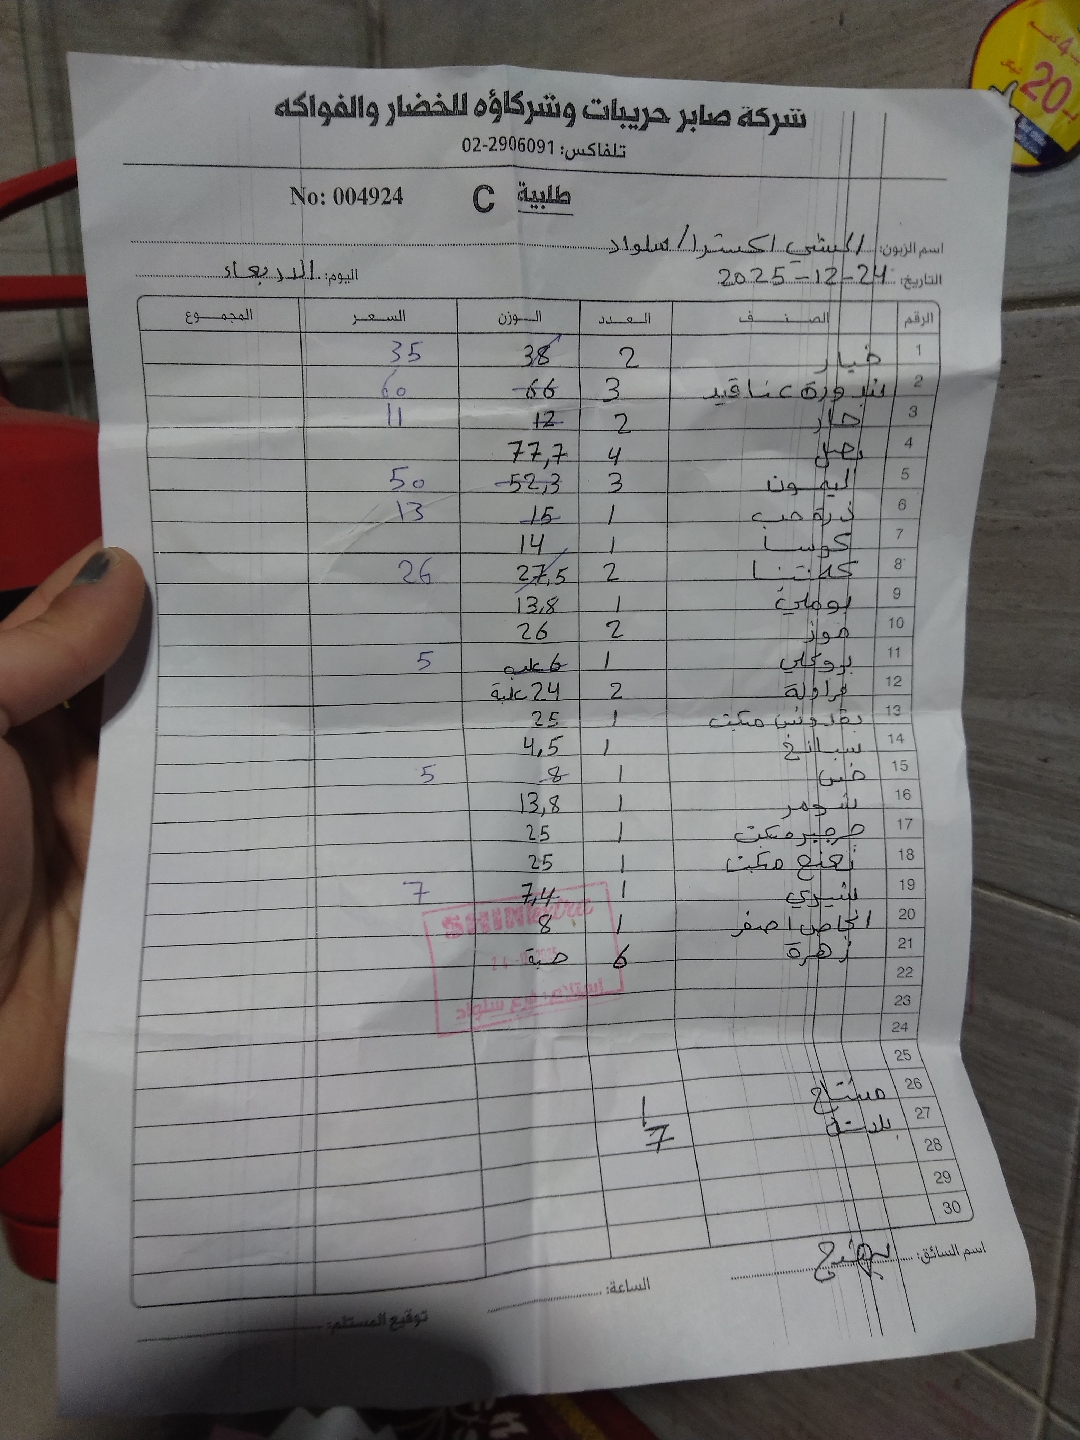 شركة صابر حريبات وشركاؤه للخضار والفواكه
تلفاكس: 02-2906091
طلبية C No: 004924
اسم الزبون: الشني اكسترا / سلواد
التاريخ: 24-12-2025 اليوم: الاربعاء
الرقم الصنف العدد الوزن السعر المجموع
1 خيار 2 38 35
2 بندورة عناقيد 3 66 60
3 2 12 11
4 بصل 4 77,7
5 ليمون 3 52,3 50
6 ذرة حب 1 15 13
7 كوسا 1 14
8 كلمنتينا 2 27,5 26
9 بوملي 1 13,8
10 موز 2 26
11 بروكلي 1 6 علب 5
12 فراولة 2 24 علبة
13 بقدونس مكبت 1 25
14 سبانخ 1 4,5
15 خس 1 8 5
16 شومر 1 13,8
17 جرجير مكبت 1 25
18 نعنع مكبت 1 25
19 شيري 1 7,4 7
20 اجاص اصفر 1 8
21 زهرة 6 حبة
22
23
24
25
26 مشتاح 1
27 بلاستك 7
28
29
30
SHINI extra
فرع سلواد
اسم السائق:
الساعة:
توقيع المستلم:
20